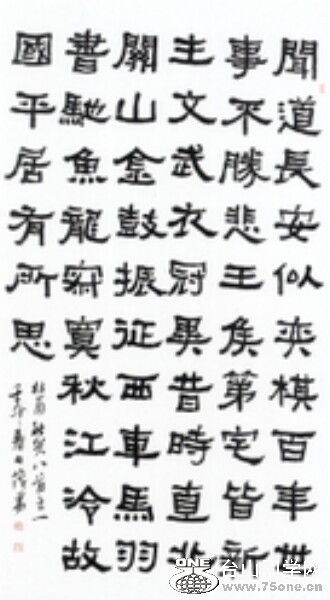 聞道長安似奕棋百年世
事不勝悲王侯第宅皆新
主文武衣冠異昔時直北
關山金鼓振征西車馬羽
書馳魚龍寂寞秋江冷故
國平居有所思
杜甫秋興八首之一
ONE
www.75one.cn